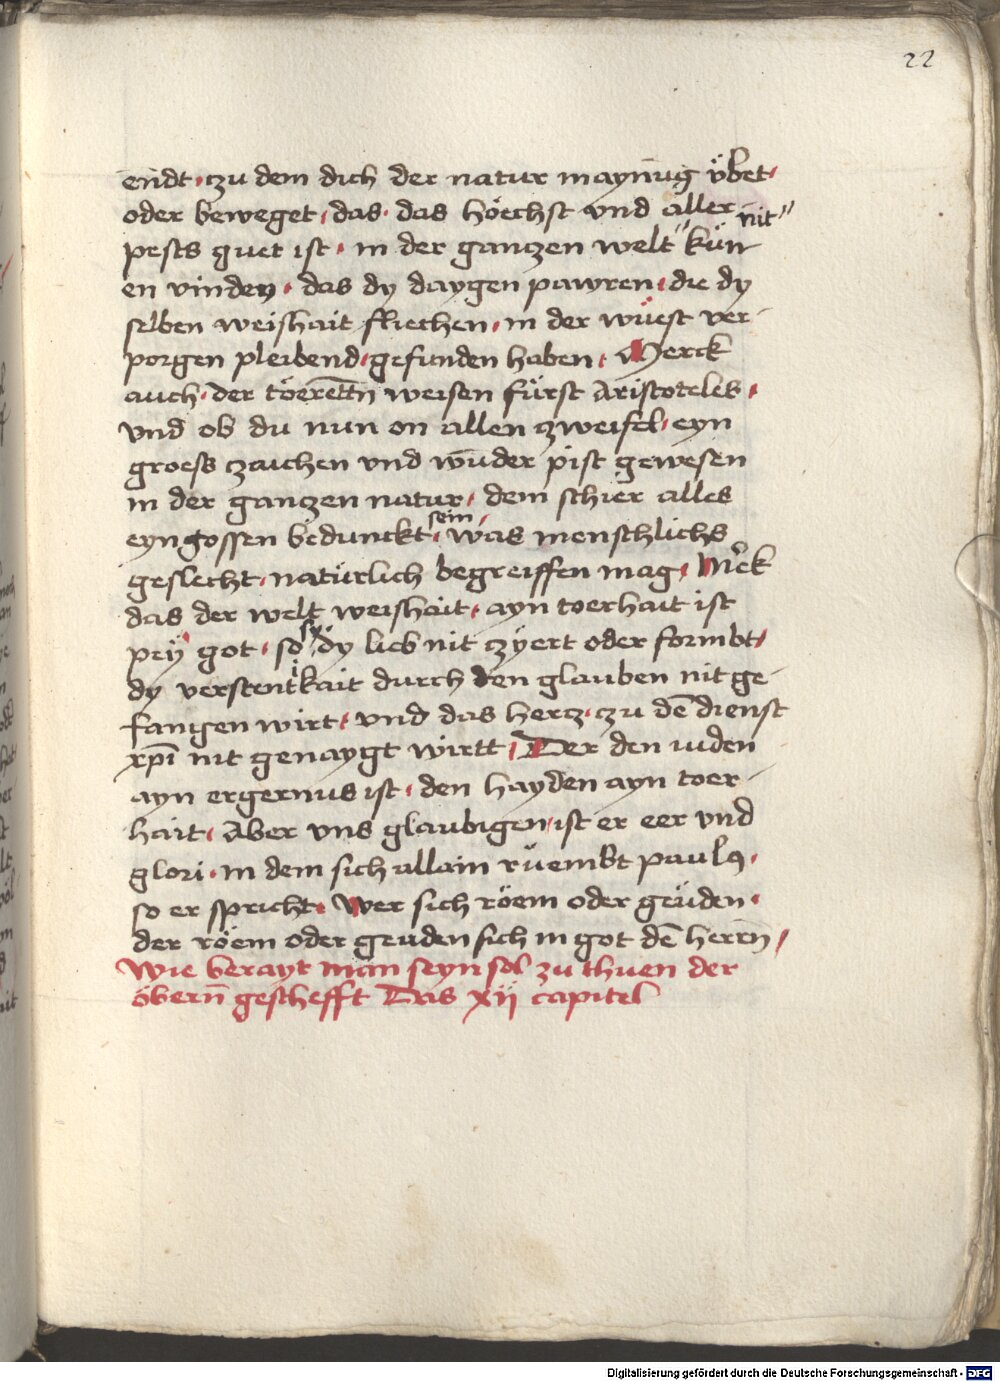 22
endt · czu dem dich der natur maynūg übet ·
oder beweget · das · das höechst vnd aller
pests guet ist · in der ganczen welt " kün nit "
en vinden · das dy daygen pawren · die dy
selben weishait fliechen · in der wüest ver-
porgen pleibend · gefunden haben · Merck
auch · der töerettn̄ weisen fürst Aristoteles ·
vnd ob du nun on allen zweifel · eyn
groess czaichen vnd wūder pist gewesen
in der ganczen natur · dem schier alles
eyngossen bedunckt · sein · was menschlichs
geslecht · natürlich begreiffen mag · M͛ck
das der welt weishait · ayn toerhait ist
pey got · so sy dy lieb nit czyert oder formbt ·
dy verstentikait durch den glauben nit ge-
fangen wirt · vnd das hercz · czu dē dienst
xp̄i nit genaygt wirtt · Der den iuden
ayn ergernus ist · den hayden ayn toer-
hait · Aber vns glaubigen ist er eer vnd
glori · in dem sich allain rüembt paulꝯ ·
so er spricht · Wer sich röem oder geüden ·
der röem oder geuden sich in got dē herrn̄ ·
Wie berayt man seyn sol zu thuen der
öbern̄ geschefft Das xij capitel
Digitalisierung gefördert durch die Deutsche Forschungsgemeinschaft - DFG